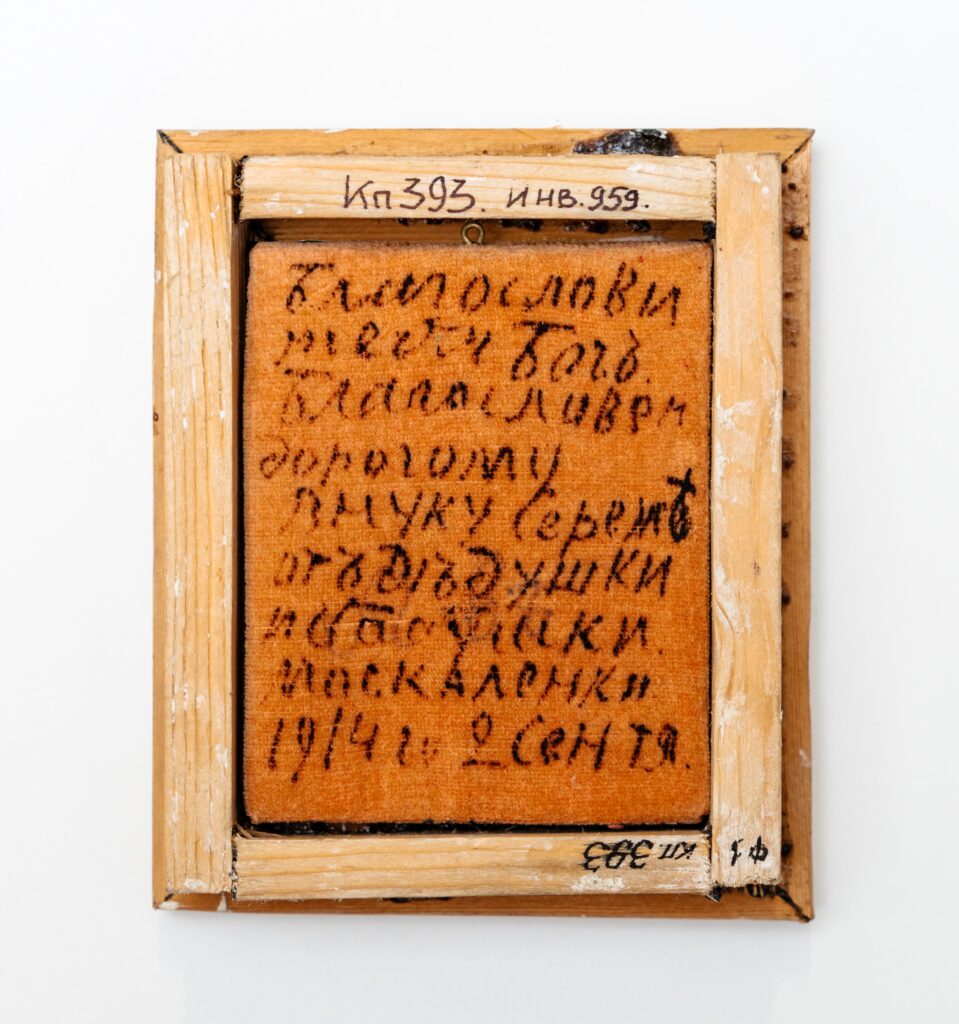 Кп 393. инв. 959.
Благослови
тебя Богъ.
Благословен
дорогому
внуку Сережѣ
отъ Дѣдушки
и Бабушки.
Москаленки
1914 го 2 Сентя.
кп 393 ф1